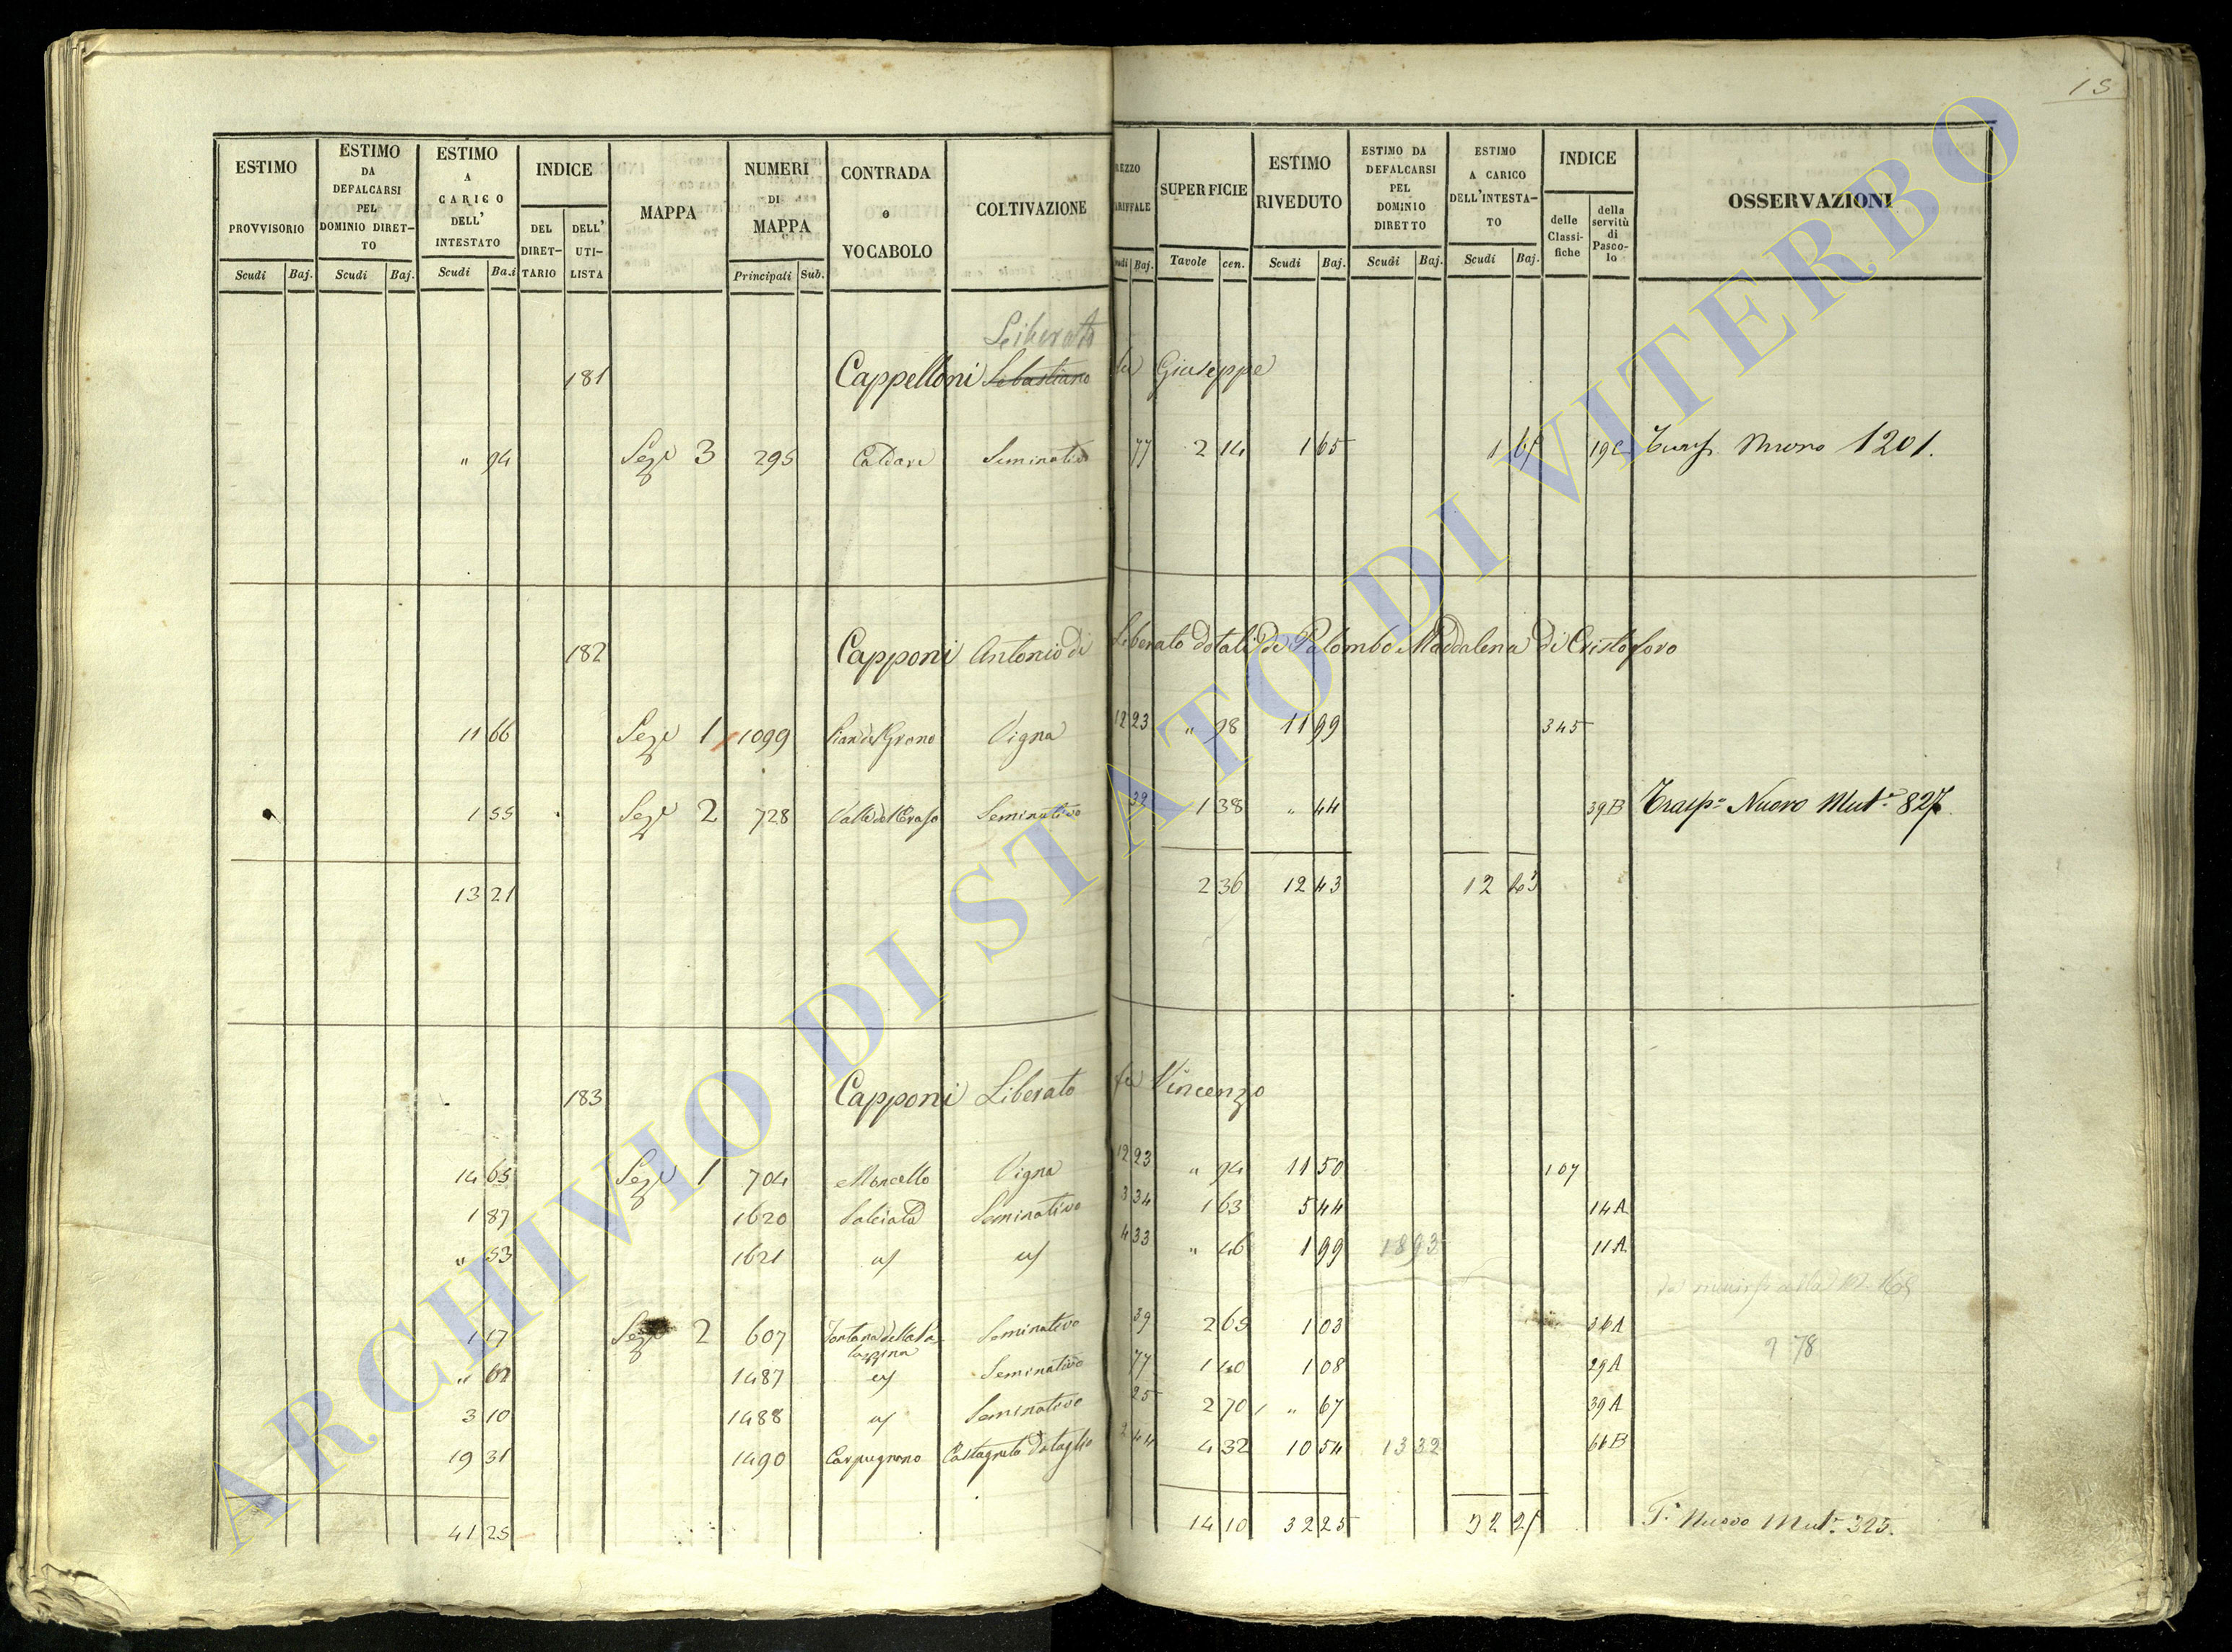 15
ESTIMO PROVVISORIO Scudi Baj.
ESTIMO DA DEFALCARSI PEL DOMINIO DIRET-TO Scudi Baj.
ESTIMO A CARICO DELL' INTESTATO Scudi Ba.i
INDICE DEL DIRET-TARIO DELL' UTI-LISTA
MAPPA
NUMERI DI MAPPA Principali Sub.
CONTRADA o VOCABOLO
COLTIVAZIONE
REZZO ARIFFALE udi Baj.
SUPERFICIE Tavole cen.
ESTIMO RIVEDUTO Scudi Baj.
ESTIMO DA DEFALCARSI PEL DOMINIO DIRETTO Scudi Baj.
ESTIMO A CARICO DELL'INTESTA-TO Scudi Baj.
INDICE delle Classi-fiche della servitù di Pasco-lo
OSSERVAZIONI
Liberato
181 Cappelloni Sebastiano fu Giuseppe
" 94 Seze 3 295 Caldare Seminativo 77 2 14 1 65 1 65 19C Trasp. Nuovo 1201.
182 Capponi Antonio di Liberato dotali di Palombo Maddalena di Cristoforo
11 66 Seze 1 1099 Pian del Grano Vigna 12 23 " 98 11 99 345
1 55 Seze 2 728 Seminativo 39 1 38 " 44 39B Trasp.o Nuovo Mut.e 827.
13 21 2 36 12 43 12 43
183 Capponi Liberato fu Vincenzo
14 65 Seze 1 704 Moncello Vigna 12 23 " 94 11 50 107
1 87 1620 Salciata Seminativo 3 34 1 63 5 44 14A
" 53 1621 " 4 33 " 46 1 99 1893 11A
1 17 Seze 2 607 Fontana della Palazzina Seminativo 39 2 65 1 03 36A
278
" 62 1487 Seminativo 77 1 40 1 08 29A
3 10 1488 Seminativo 25 2 70 " 67 39A
19 31 1490 Carpugnano Castagneto da taglio 2 44 4 32 10 54 1332 66B
41 25 14 10 32 25 32 25 T.o Nuovo Mut.e 325.
ARCHIVIO DI STATO DI VITERBO